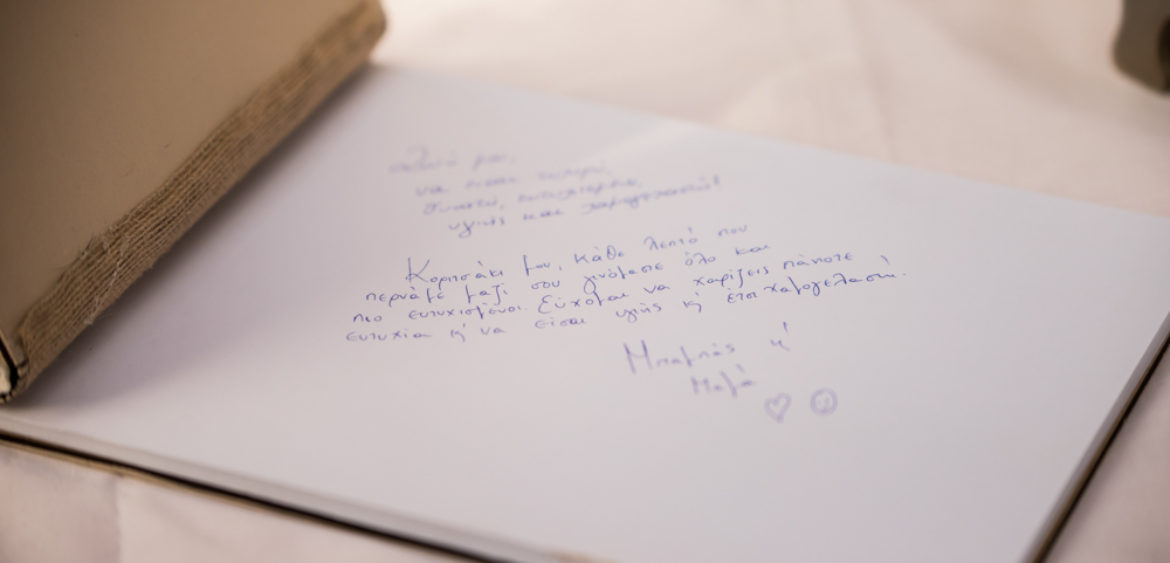 μου,
να είσαι
δυνατή,
υγιής και χαμογελαστή!
Κοριτσάκι μου, κάθε λεπτό που
περνάμε μαζί σου γινόμαστε όλο και
πιο ευτυχισμένοι. Εύχομαι να χαρίζεις πάντοτε
ευτυχία κ' να είσαι υγιής κ' έτσι χαμογελαστή.
Μπαμπάς κ'
Μαμά